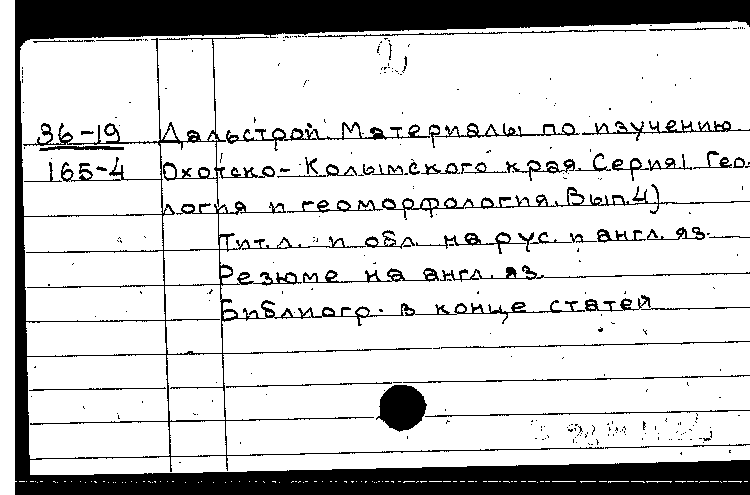 2
36-19 Дальстрой. Материалы по изучению
165-4 Охотско-Колымского края. Серия 1. Гео-
логия и геоморфология. Вып. 4)
Тит. л. и обл. на рус. и англ. яз.
Резюме на англ. яз.
Библиогр. в конце статей